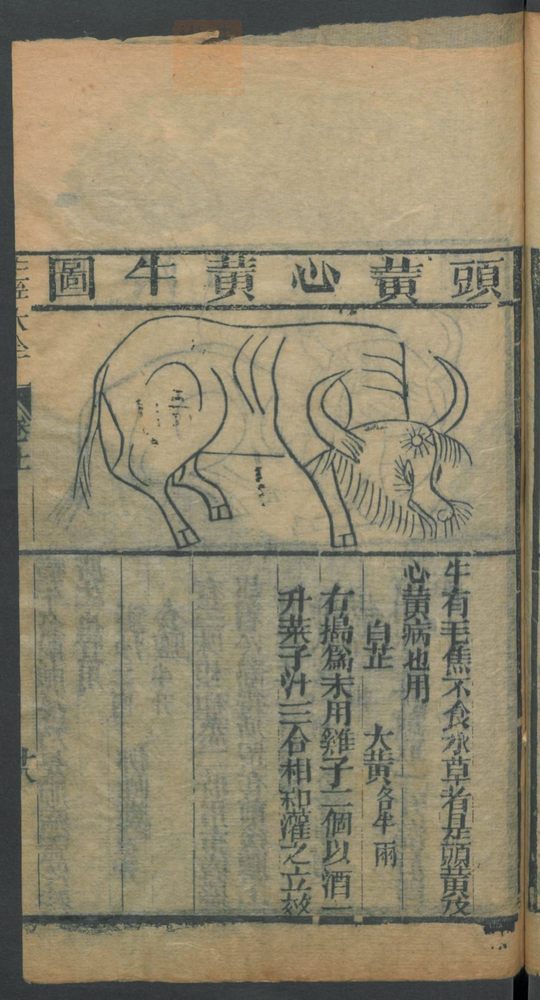 頭黃心黃牛圖
牛有毛焦不食水草者是頭黃及
心黃病也用
白芷　大黃各半兩
右搗為末用雞子二個以酒一
升菜子汁三合相和灌之立效